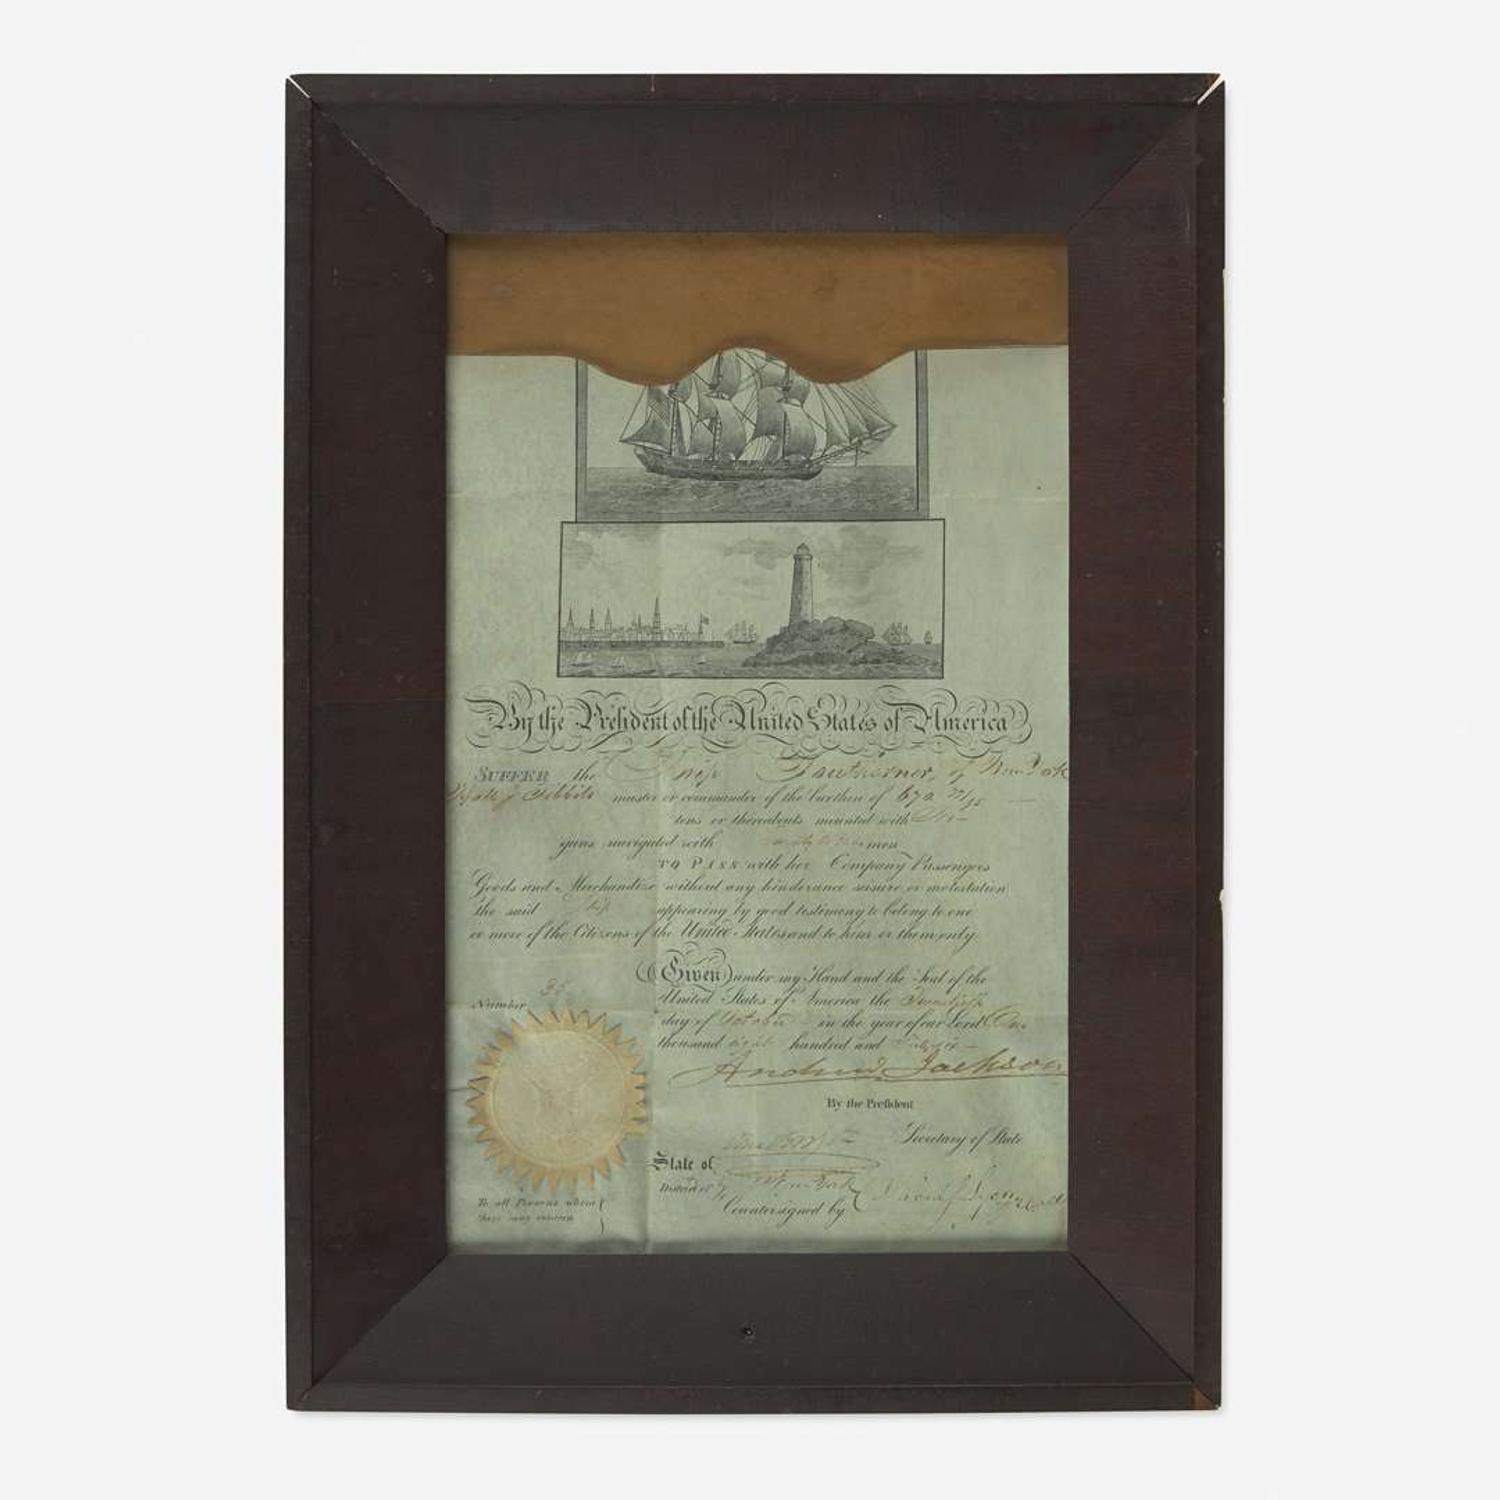 By the President of the United States of America
SUFFER the Ship of New York
master or commander of the burthen of
tons or thereabouts mounted with
guns navigated with men
TO PASS with her Company Passengers
Goods and Merchandize without any hinderance seisure or molestation
the said Ship appearing by good testimony to belong to one
or more of the Citizens of the United States and to him or them only
Given under my Hand and the Seal of the
United States of America the
day of October in the year of our Lord One
thousand eight hundred and
Number 35
Andrew Jackson
By the President
Secretary of State
State of
District of New York
Countersigned by
To all Persons whom
these may concern